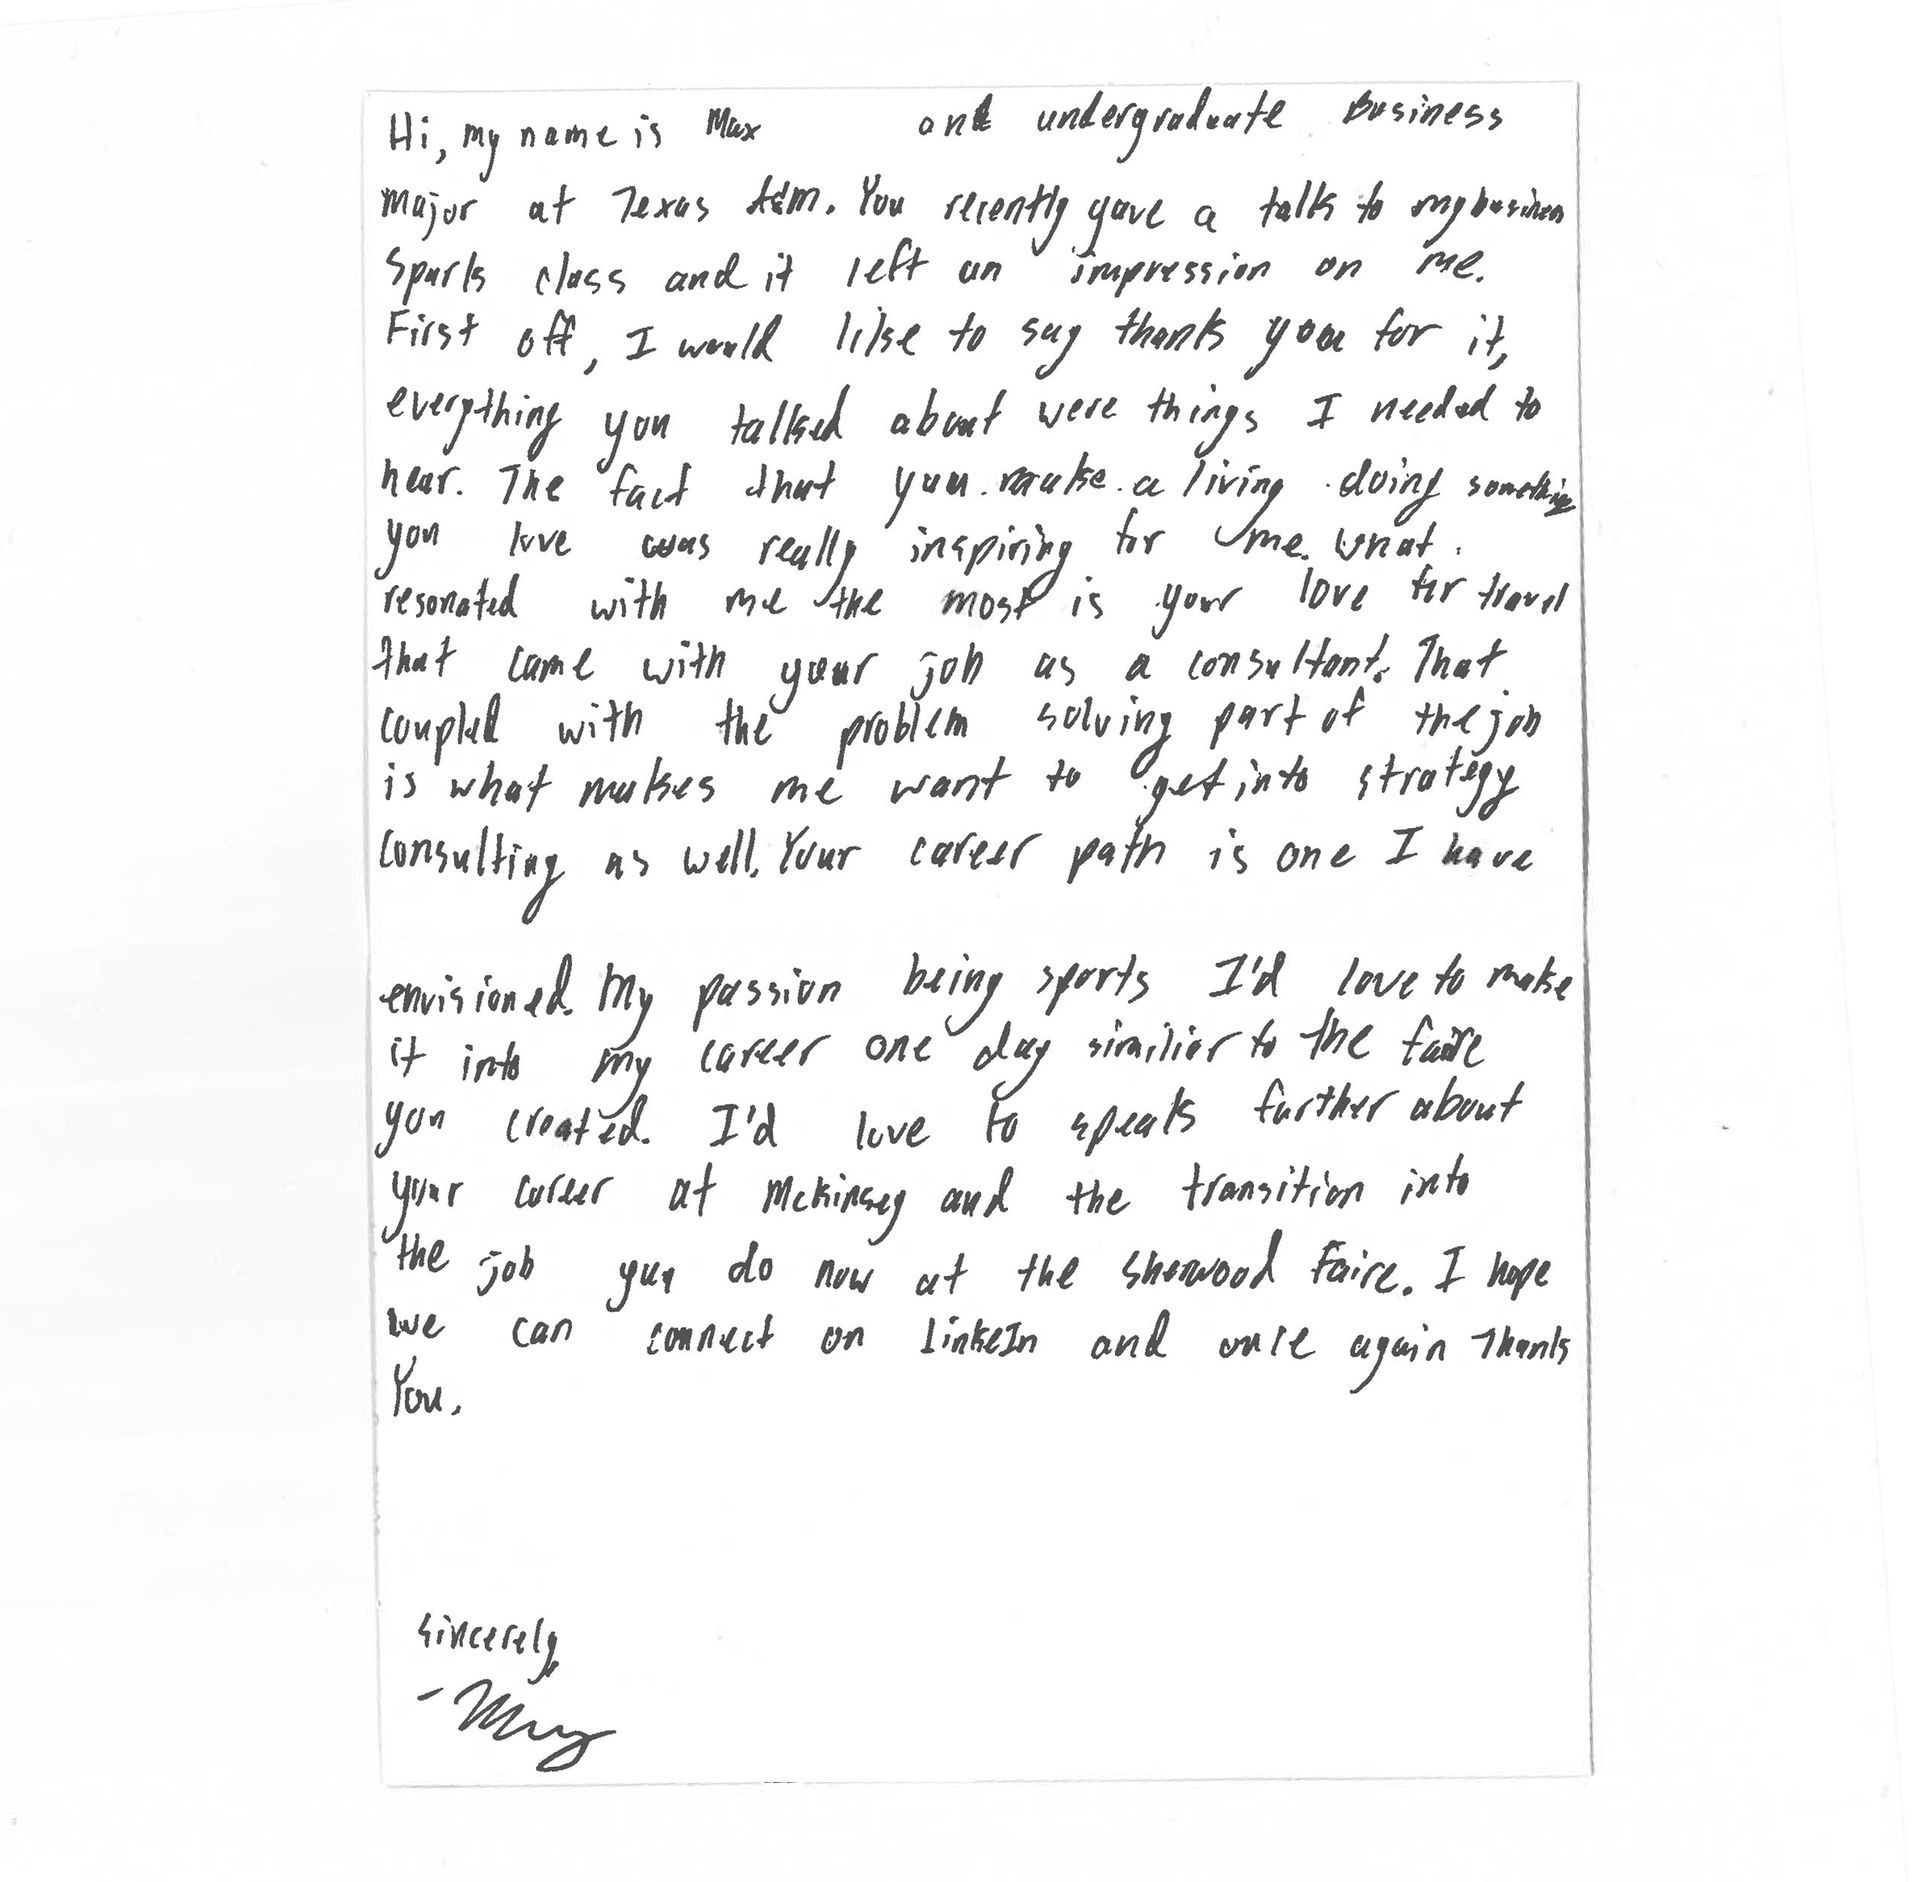 Hi, my name is Max and undergraduate Business
major at Texas A&M. You recently gave a talk to my business
Spark class and it left an impression on me.
First off, I would like to say thank you for it,
everything you talked about were things I needed to
hear. The fact that you make a living doing something
you love was really inspiring for me. What
resonated with me the most is your love for travel
that came with your job as a consultant. That
coupled with the problem solving part of the job
is what makes me want to get into strategy
consulting as well. Your career path is one I have
envisioned. My passion being sports I'd love to make
it into my career one day similior to the faire
you created. I'd love to speak further about
your career at McKinsey and the transition into
the job you do now at the Sherwood Faire. I hope
we can connect on linkeIn and once again Thank
You.
Sincerely,
-Max